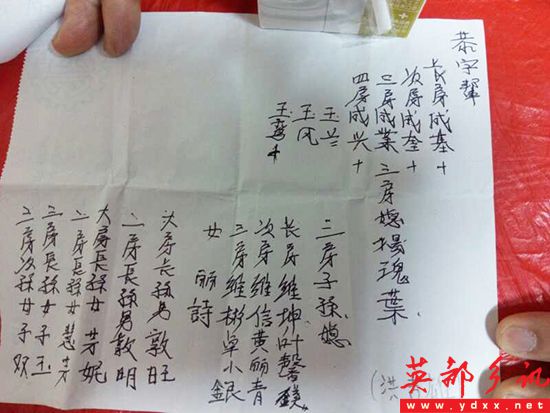 恭字輩
長房成基+
次房成奎+
三房成業 三房媳楊瑰葉
四房成兴+
玉兰
玉凤
玉鸾+
三房子孫媳
長房維坤叶馨鏷
次房維信黄丽青
三房維彬卓小銀
女丽詩
大房長孫男敦旺
二房長孫男敦明
大房長孫女芽妮
二房長孫女慧芽
三房長孫女子玉
二房次孫女子双
(洪
英都乡讯
www.ydxx.net